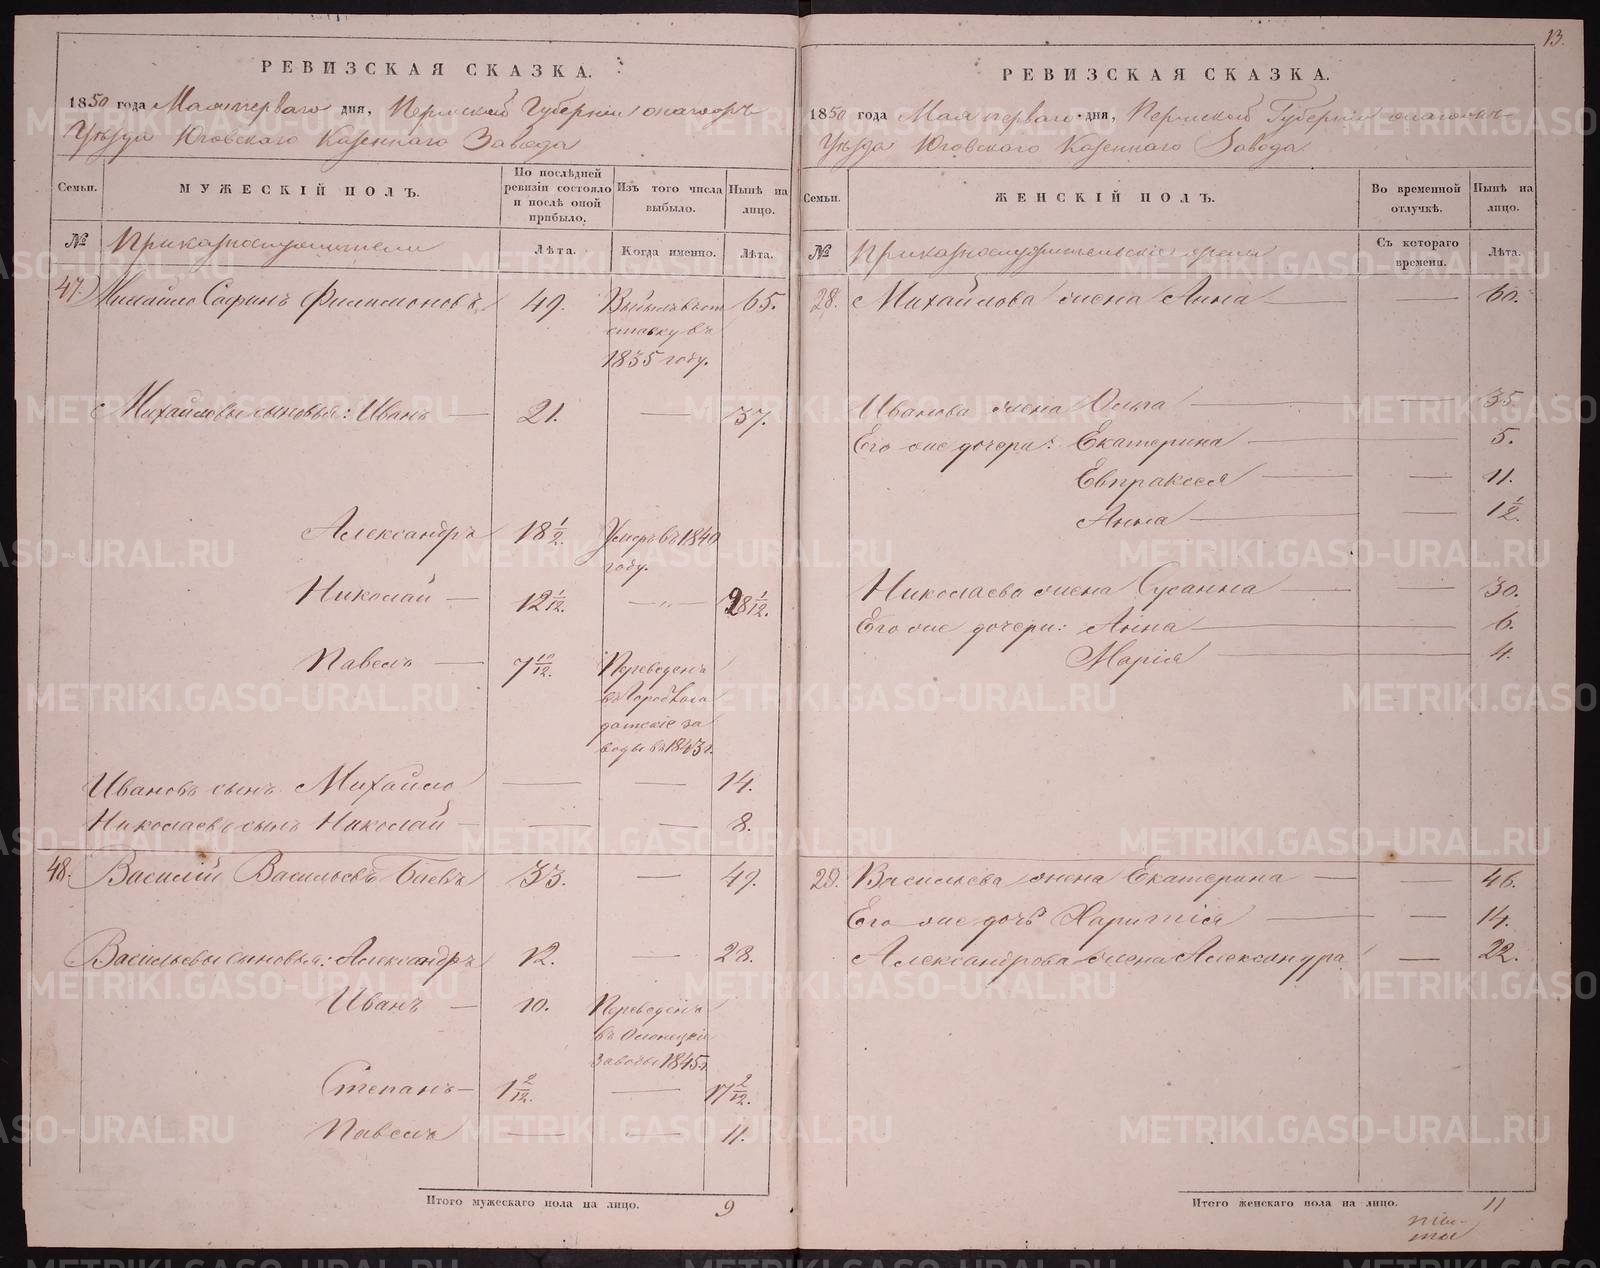 13.
РЕВИЗСКАЯ СКАЗКА.
1850 года Мая перваго дня, Пермской Губернии
Уезда Юговскаго Казеннаго Завода
Семьи.
МУЖЕСКІЙ ПОЛЪ.
По послѣдней ревизіи состояло и послѣ оной прибыло.
Изъ того числа выбыло.
Нынѣ на лицо.
№
Приказнослужители
Лѣта.
Когда именно.
Лѣта.
47. Михайло Филимоновъ 49. 65.
ставку въ
1835 году.
Михайловы сыновья: Иванъ — 21. — 37.
Александръ 18 1/2. Умеръ въ 1840
году.
Николай — 12 1/12. — 28 1/12.
Павелъ — 7 10/12. Переведенъ
въ Горобла
датские за
воды въ 1843 г.
Ивановъ сынъ Михайло — — 14.
Николаевъ сынъ Николай — — 8.
48. Василій Васильевъ Баевъ 33. — 49.
Васильевы сыновья: Александръ 12. — 28.
Иванъ — 10. Переведенъ
въ Олонецкіе
Заводы 1845 г.
Степанъ — 1 2/12. — 17 2/12.
Павелъ — — 11.
Итого мужескаго пола на лицо. 9
РЕВИЗСКАЯ СКАЗКА.
1850 года Мая перваго дня, Пермской Губернии
Уезда Юговскаго Казеннаго Завода
Семьи.
ЖЕНСКІЙ ПОЛЪ.
Во временной отлучкѣ.
Нынѣ на лицо.
№
Съ котораго времени.
Лѣта.
28. Михайлова жена Анна — — 60.
Иванова жена Ольга — — 35
Его же дочери: Екатерина — — 5.
Евпраксея — — 11.
Анна — — 1 1/2.
Николаева жена Сусанна — — 30.
Его же дочери: Анна — 6.
Марія — 4.
29. Васильева жена Екатерина — — 46.
Его же дочь Харитія — — 14.
Александрова жена Александра — 22.
Итого женскаго пола на лицо. 11